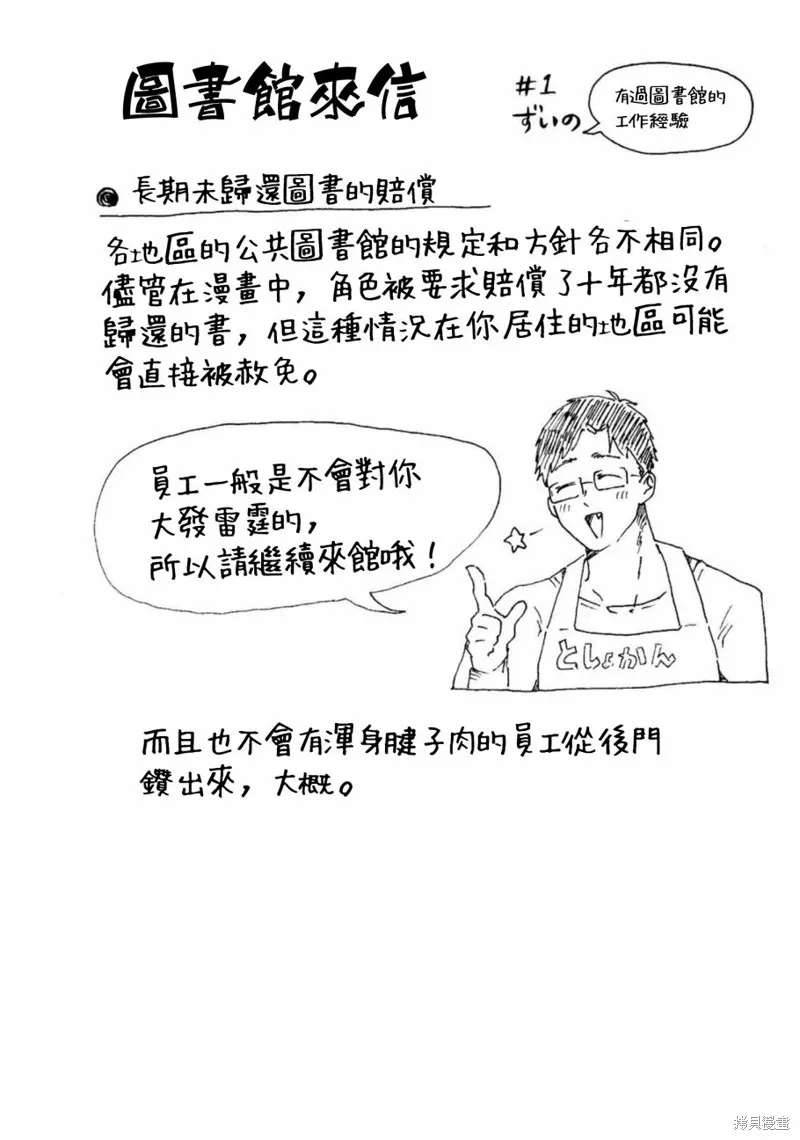 圖書館來信
#1
ずいの
有過圖書館的
工作經驗
長期未歸還圖書的賠償
各地區的公共圖書館的規定和方針各不相同。
儘管在漫畫中，角色被要求賠償了十年都沒有
歸還的書，但這種情況在你居住的地區可能
會直接被赦免。
員工一般是不會對你
大發雷霆的，
所以請繼續來館哦！
としょかん
而且也不會有渾身腱子肉的員工從後門
鑽出來，大概。
拷貝漫畫